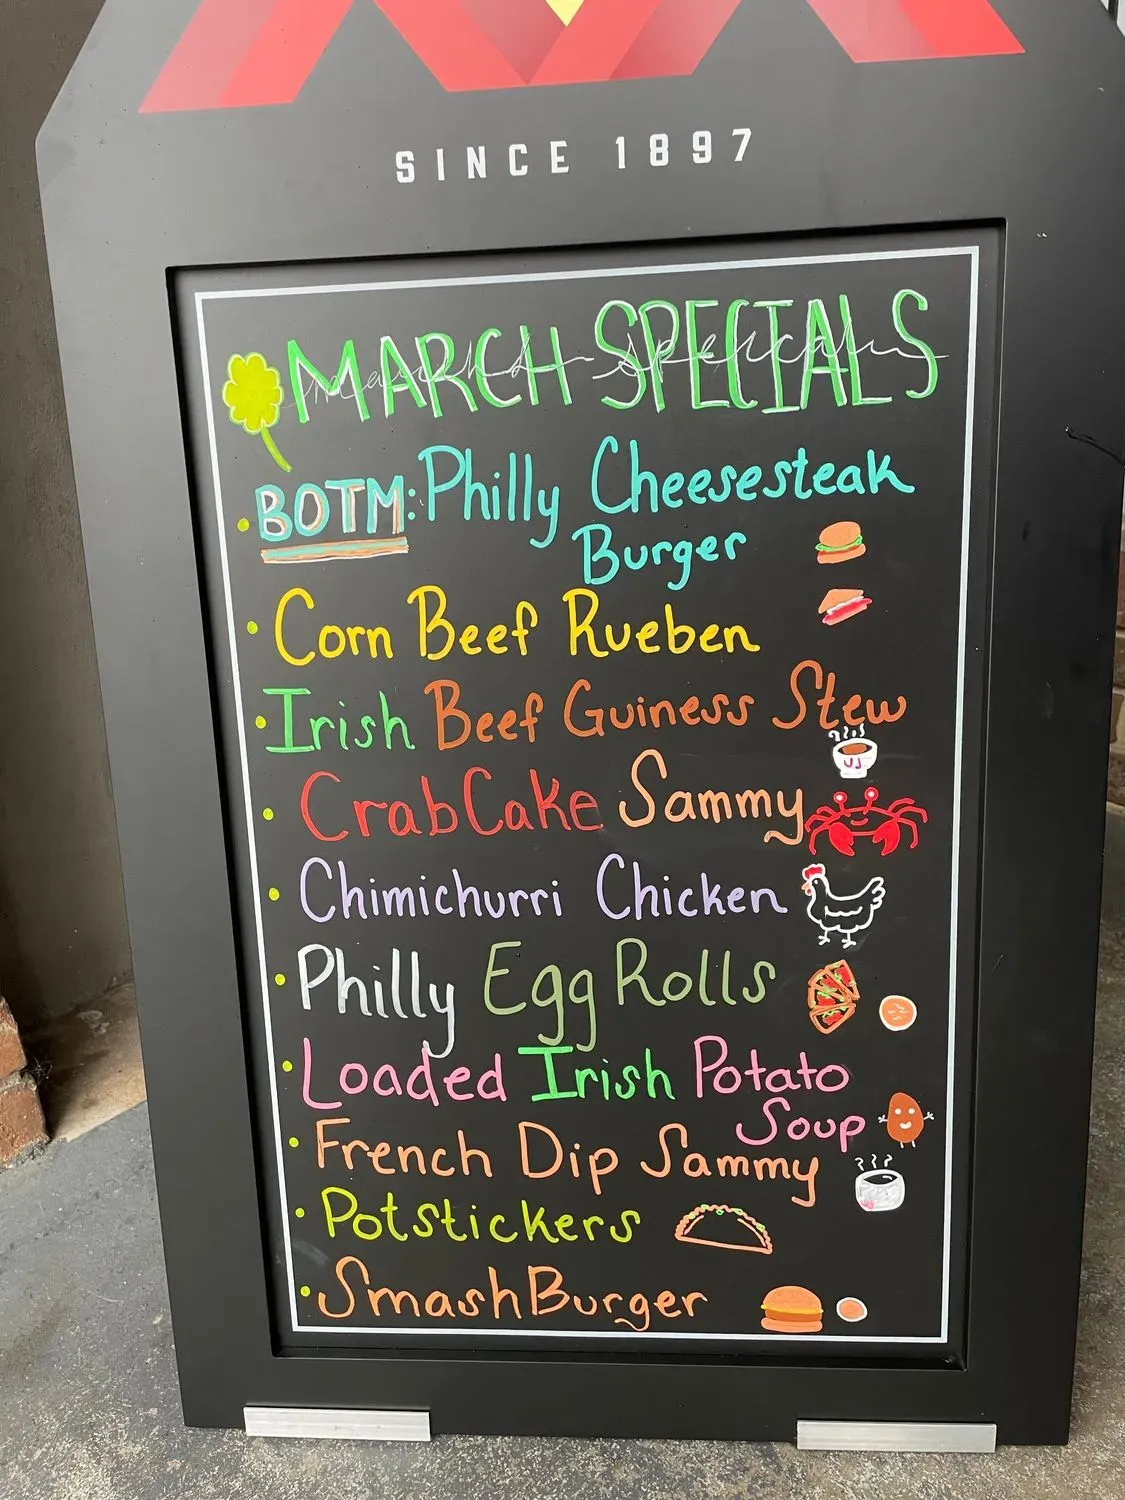 SINCE 1897
MARCH SPECIALS
BOTM: Philly Cheesesteak
Burger
Corn Beef Rueben
Irish Beef Guiness Stew
Crab Cake Sammy
Chimichurri Chicken
Philly Egg Rolls
Loaded Irish Potato
Soup
French Dip Sammy
Potstickers
SmashBurger